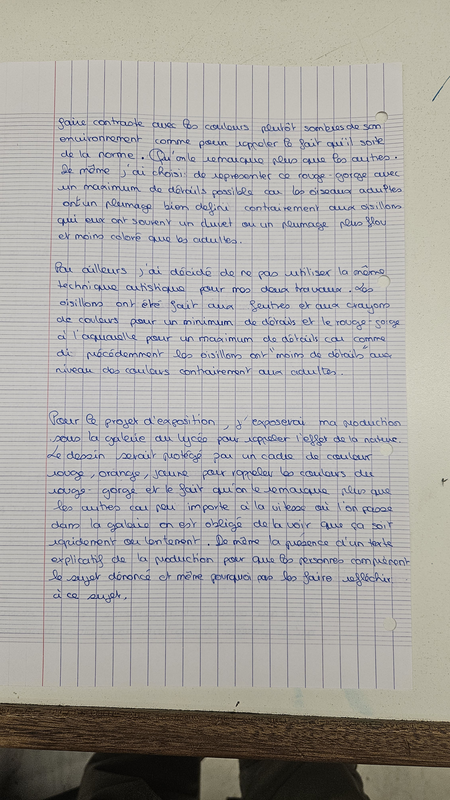 faire contraste avec les couleurs plutôt sombres de son
environnement comme pour rappeler le fait qu'il sorte
de la norme. Qu'on le remarque plus que les autres.
De même j'ai choisi de representer ce rouge-gorge avec
un maximum de détails possibles car les oiseaux adultes
ont un plumage bien defini contrairement aux oisillons
qui eux ont souvent un duvet ou un plumage plus flou
et moins coloré que les adultes.
Par ailleurs j'ai décidé de ne pas utiliser la même
technique artistique pour mes deux travaux. Les
oisillons ont été fait aux feutres et aux crayons
de couleurs pour un minimum de détails et le rouge-gorge
à l'aquarelle pour un maximum de détails car comme
dit précédemment les oisillons ont "moins de détails" aux
niveau des couleurs contrairement aux adultes.
Pour le projet d'exposition, j'exposerai ma production
sous la galerie du lycée pour rappeler l'effet de la nature.
Le dessin serait protégé par un cadre de couleur
rouge, orange, jaune pour rappeler les couleurs du
rouge-gorge et le fait qu'on le remarque plus que
les autres car peu importe à la vitesse où l'on passe
dans la galerie on est obligé de la voir que ça soit
rapidement ou lentement. De même la présence d'un texte
explicatif de la production pour que les personnes comprennent
le sujet dénoncé et même pourquoi pas les faire réfléchir
à ce sujet.